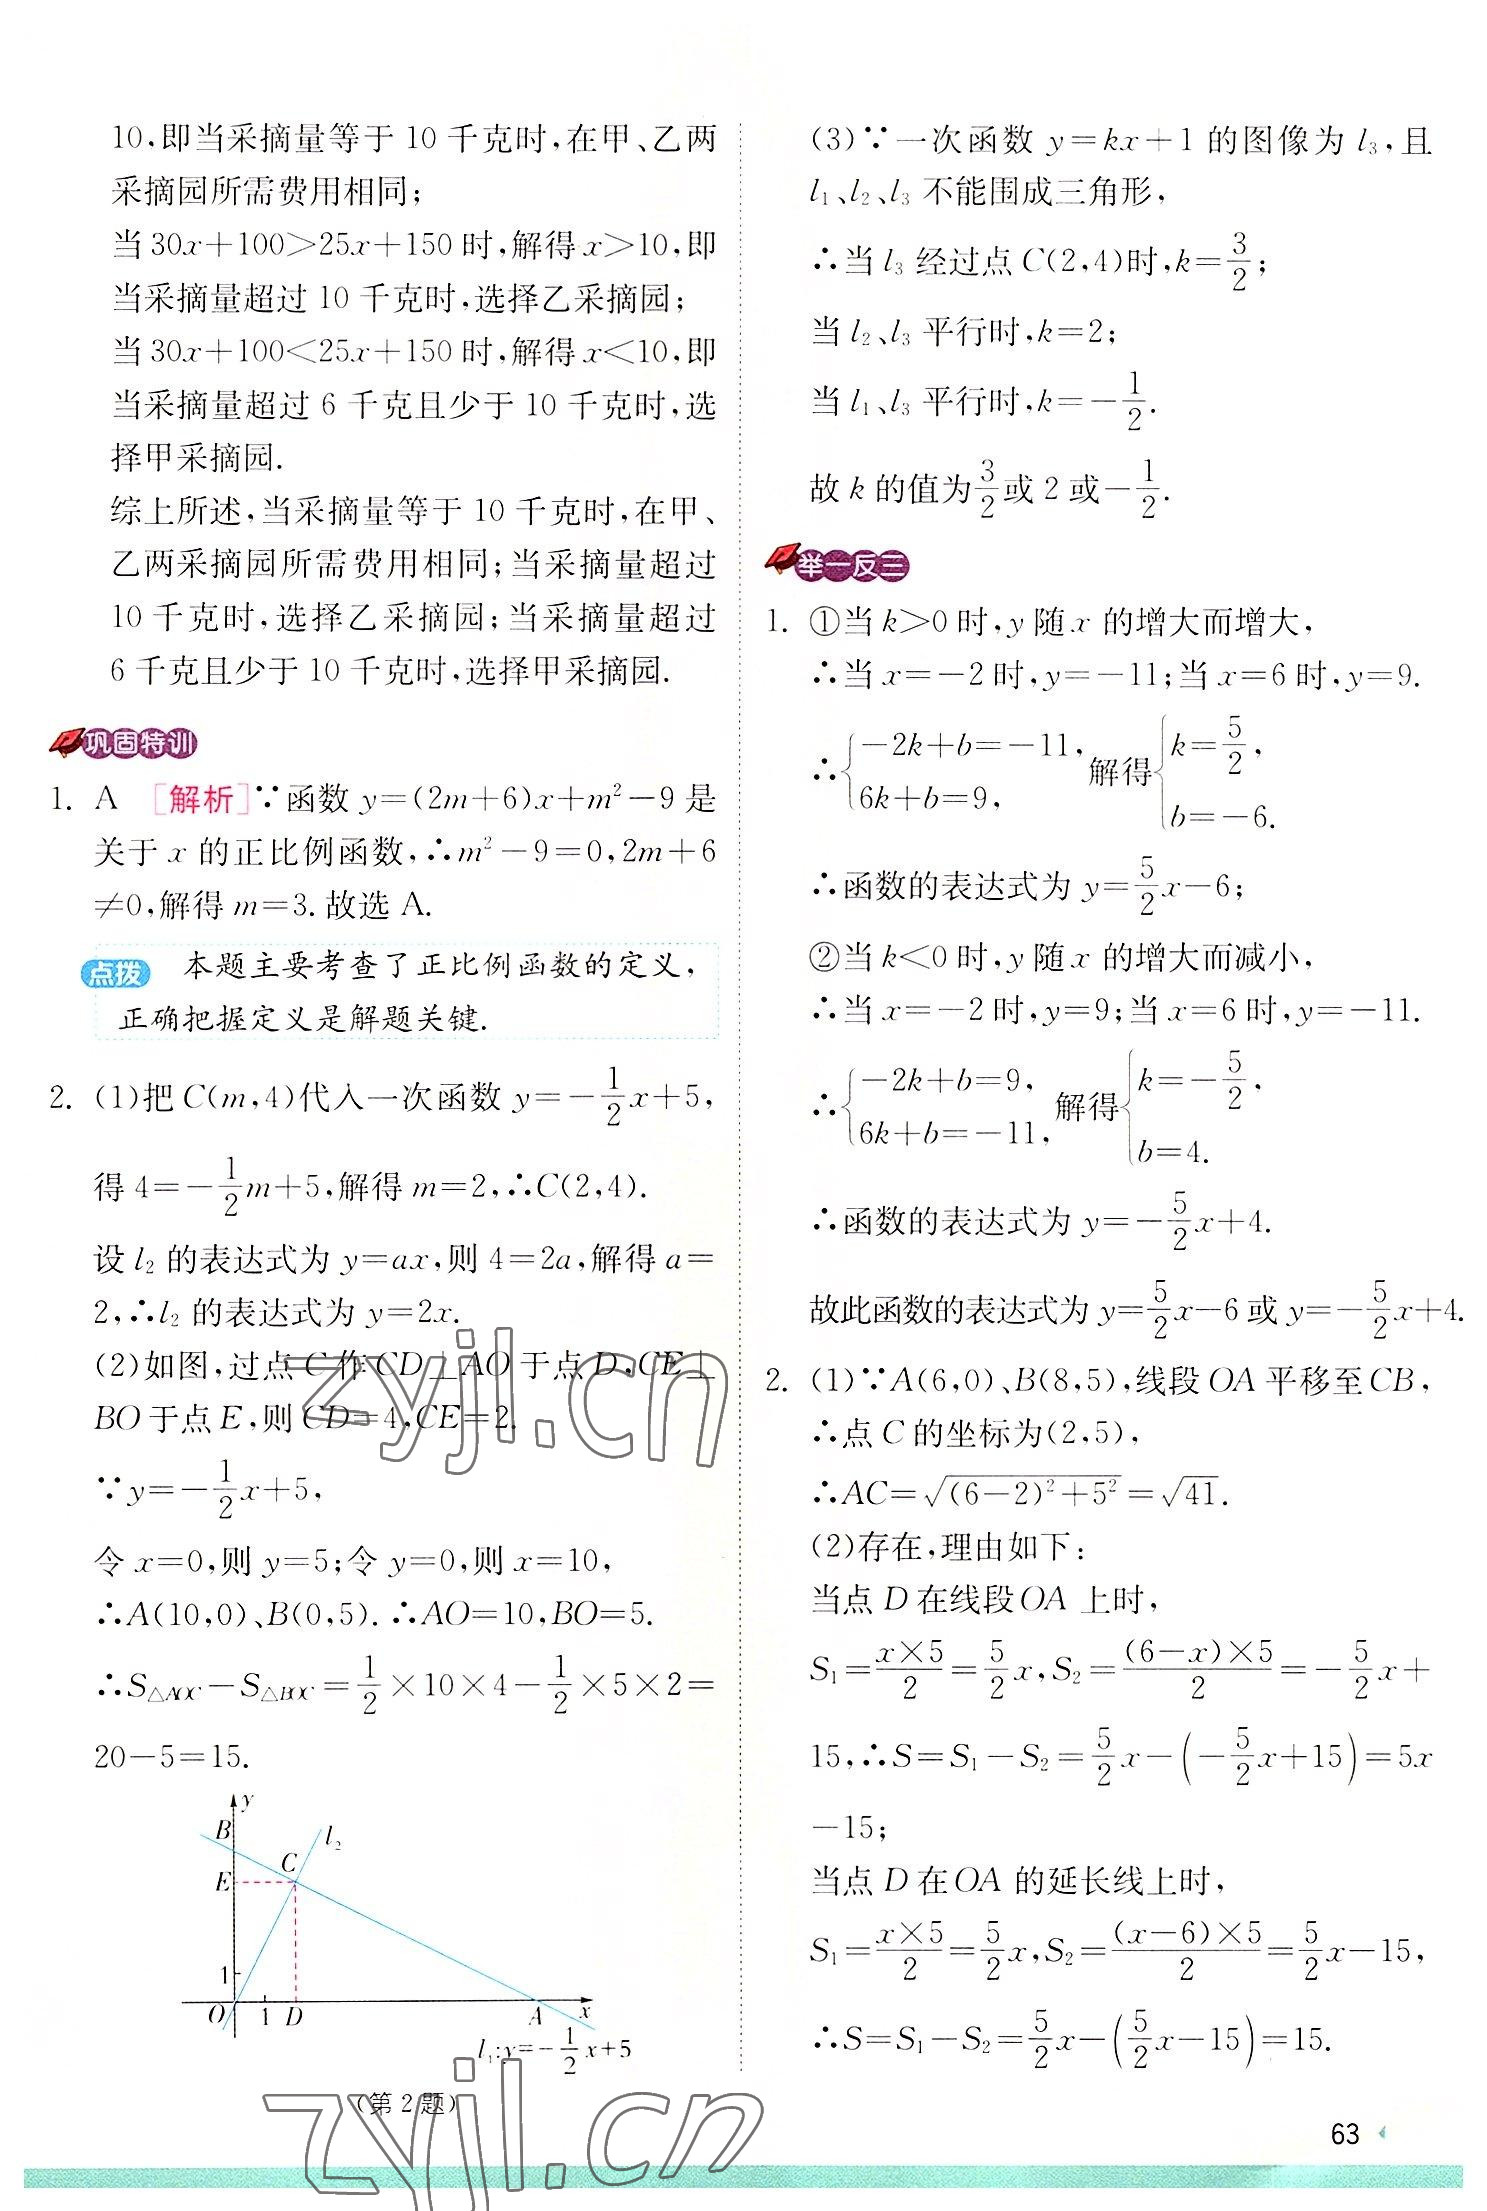 10,即当采摘量等于 10 千克时,在甲、乙两
采摘园所需费用相同;
当 30x+100>25x+150 时,解得 x>10,即
当采摘量超过 10 千克时,选择乙采摘园;
当 30x+100<25x+150 时,解得 x<10,即
当采摘量超过 6 千克且少于 10 千克时,选
择甲采摘园.
综上所述,当采摘量等于 10 千克时,在甲、
乙两采摘园所需费用相同;当采摘量超过
10 千克时,选择乙采摘园;当采摘量超过
6 千克且少于 10 千克时,选择甲采摘园.
巩固特训
1. A [解析]∵函数 y=(2m+6)x+m²-9 是
关于 x 的正比例函数,∴m²-9=0,2m+6
≠0,解得 m=3.故选 A.
点拨 本题主要考查了正比例函数的定义,
正确把握定义是解题关键.
2. (1)把 C(m,4)代入一次函数 y=-1/2x+5,
得 4=-1/2m+5,解得 m=2,∴C(2,4).
设 l₂ 的表达式为 y=ax,则 4=2a,解得 a=
2,∴l₂ 的表达式为 y=2x.
(2)如图,过点 C 作 CD⊥AO 于点 D,CE⊥
BO 于点 E,则 CD=4,CE=2.
∵y=-1/2x+5,
令 x=0,则 y=5;令 y=0,则 x=10,
∴A(10,0)、B(0,5).∴AO=10,BO=5.
∴S△AOC-S△BOC=1/2×10×4-1/2×5×2=
20-5=15.
y
B
l₂
C
E
1
O
1
D
A
x
l₁:y=-1/2x+5
(第 2 题)
(3)∵一次函数 y=kx+1 的图像为 l₃,且
l₁、l₂、l₃ 不能围成三角形,
∴当 l₃ 经过点 C(2,4)时,k=3/2;
当 l₂、l₃ 平行时,k=2;
当 l₁、l₃ 平行时,k=-1/2.
故 k 的值为3/2或 2 或-1/2.
举一反三
1. ①当 k>0 时,y 随 x 的增大而增大,
∴当 x=-2 时,y=-11;当 x=6 时,y=9.
∴{-2k+b=-11, 6k+b=9, 解得{k=5/2, b=-6.
∴函数的表达式为 y=5/2x-6;
②当 k<0 时,y 随 x 的增大而减小,
∴当 x=-2 时,y=9;当 x=6 时,y=-11.
∴{-2k+b=9, 6k+b=-11, 解得{k=-5/2, b=4.
∴函数的表达式为 y=-5/2x+4.
故此函数的表达式为 y=5/2x-6 或 y=-5/2x+4.
2. (1)∵A(6,0)、B(8,5),线段 OA 平移至 CB,
∴点 C 的坐标为(2,5),
∴AC=√((6-2)²+5²)=√41.
(2)存在,理由如下:
当点 D 在线段 OA 上时,
S₁=x×5/2=5/2x,S₂=(6-x)×5/2=-5/2x+
15,∴S=S₁-S₂=5/2x-(-5/2x+15)=5x
-15;
当点 D 在 OA 的延长线上时,
S₁=x×5/2=5/2x,S₂=(x-6)×5/2=5/2x-15,
∴S=S₁-S₂=5/2x-(5/2x-15)=15.
63
zyjl.cn
zyjl.cn